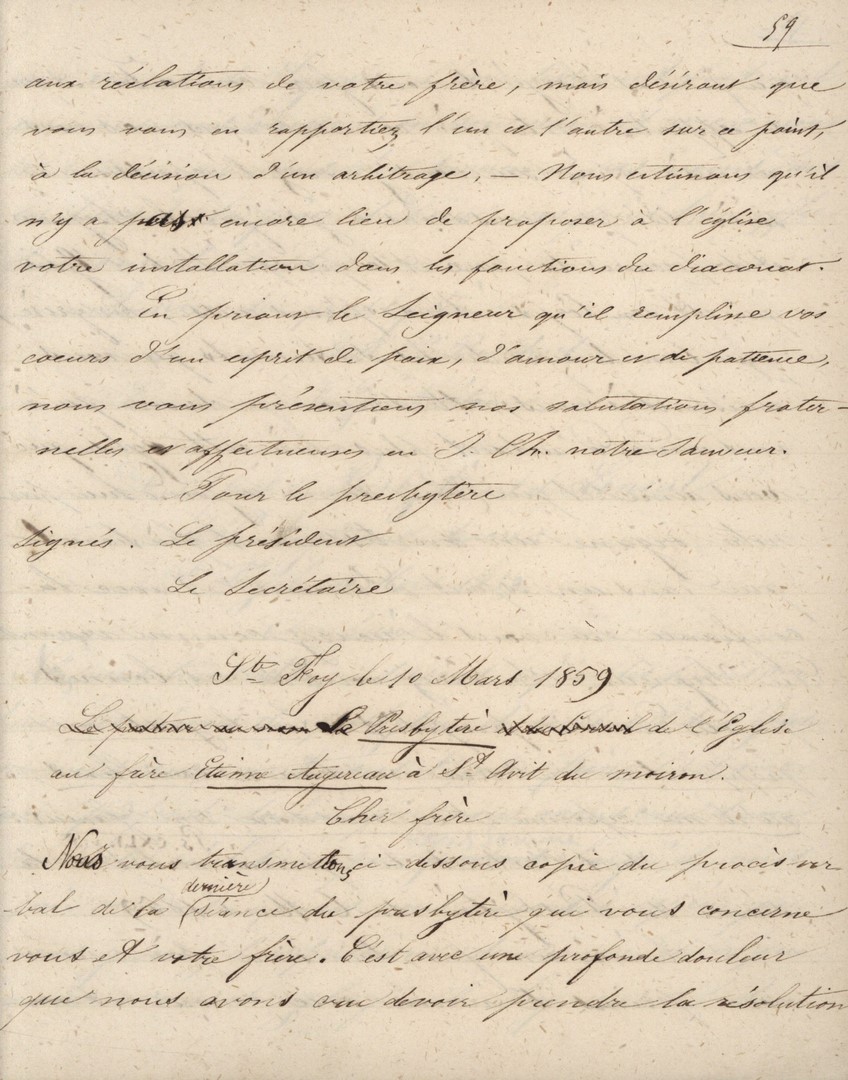 59
aux réclations de votre frère, mais désirant que
vous vous en rapportiez l'un et l'autre sur ce point,
à la décision d'un arbitrage, — Nous estimons qu'il
n'y a pas encore lieu de proposer à l'église
votre installation dans les fonctions du diaconat.
En priant le Seigneur qu'il remplisse vos
coeurs d'un esprit de paix, d'amour et de patience,
nous vous présentons nos salutations frater-
nelles et affectueuses en J. Ch. notre Sauveur.
Pour le presbytère
Signés. Le président
Le Secrétaire
Ste Foy le 10 Mars 1859
Le Presbytère de l'Eglise
au frère Etienne Augereau à St Avit du moiron.
Cher frère
Nous vous transmettons ci-dessous copie du procès ver-
dernière
bal de la (séance du presbytère qui vous concerne
vous et votre frère. C'est avec une profonde douleur
que nous avons cru devoir prendre la résolution